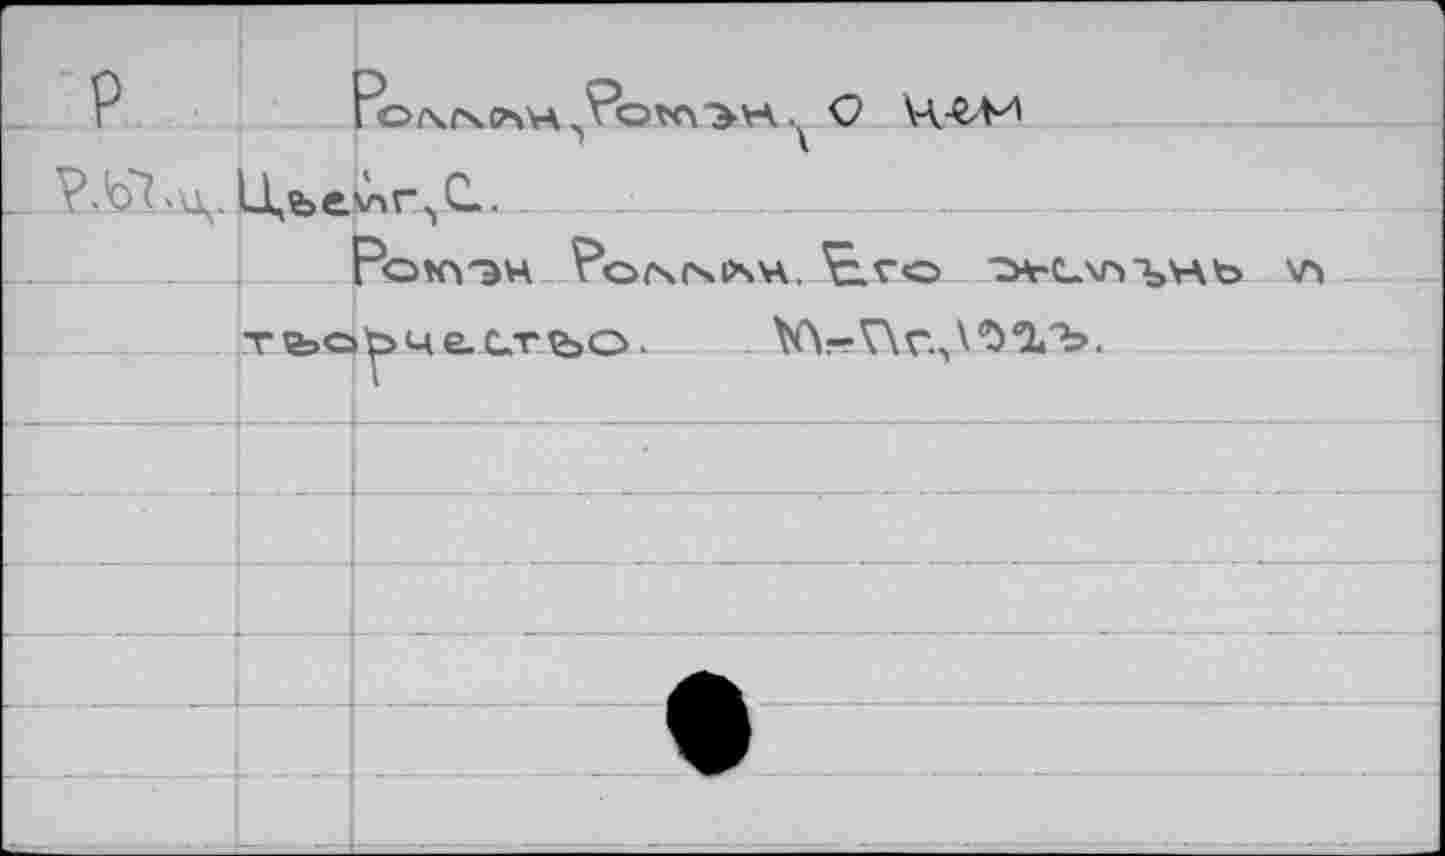 Р Роллан, Ромэн, о нём
Р.67.ц. Цвейг, С.
Ромэн Роллан. Его жизнь и
творчество. М.-Пг., 1923.